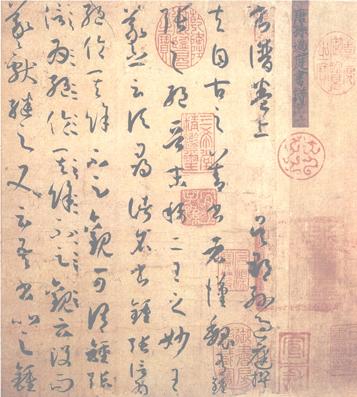 唐孫過庭書譜
書譜卷上 吳郡孫過庭撰
夫自古之善書者漢魏有鍾
張之絕晉末稱二王之妙王
羲之云頃尋諸名書鍾張信為
絕倫其餘不足觀可謂鍾張
信為絕倫其餘不足觀云沒而
羲獻繼之又云吾書比之鍾